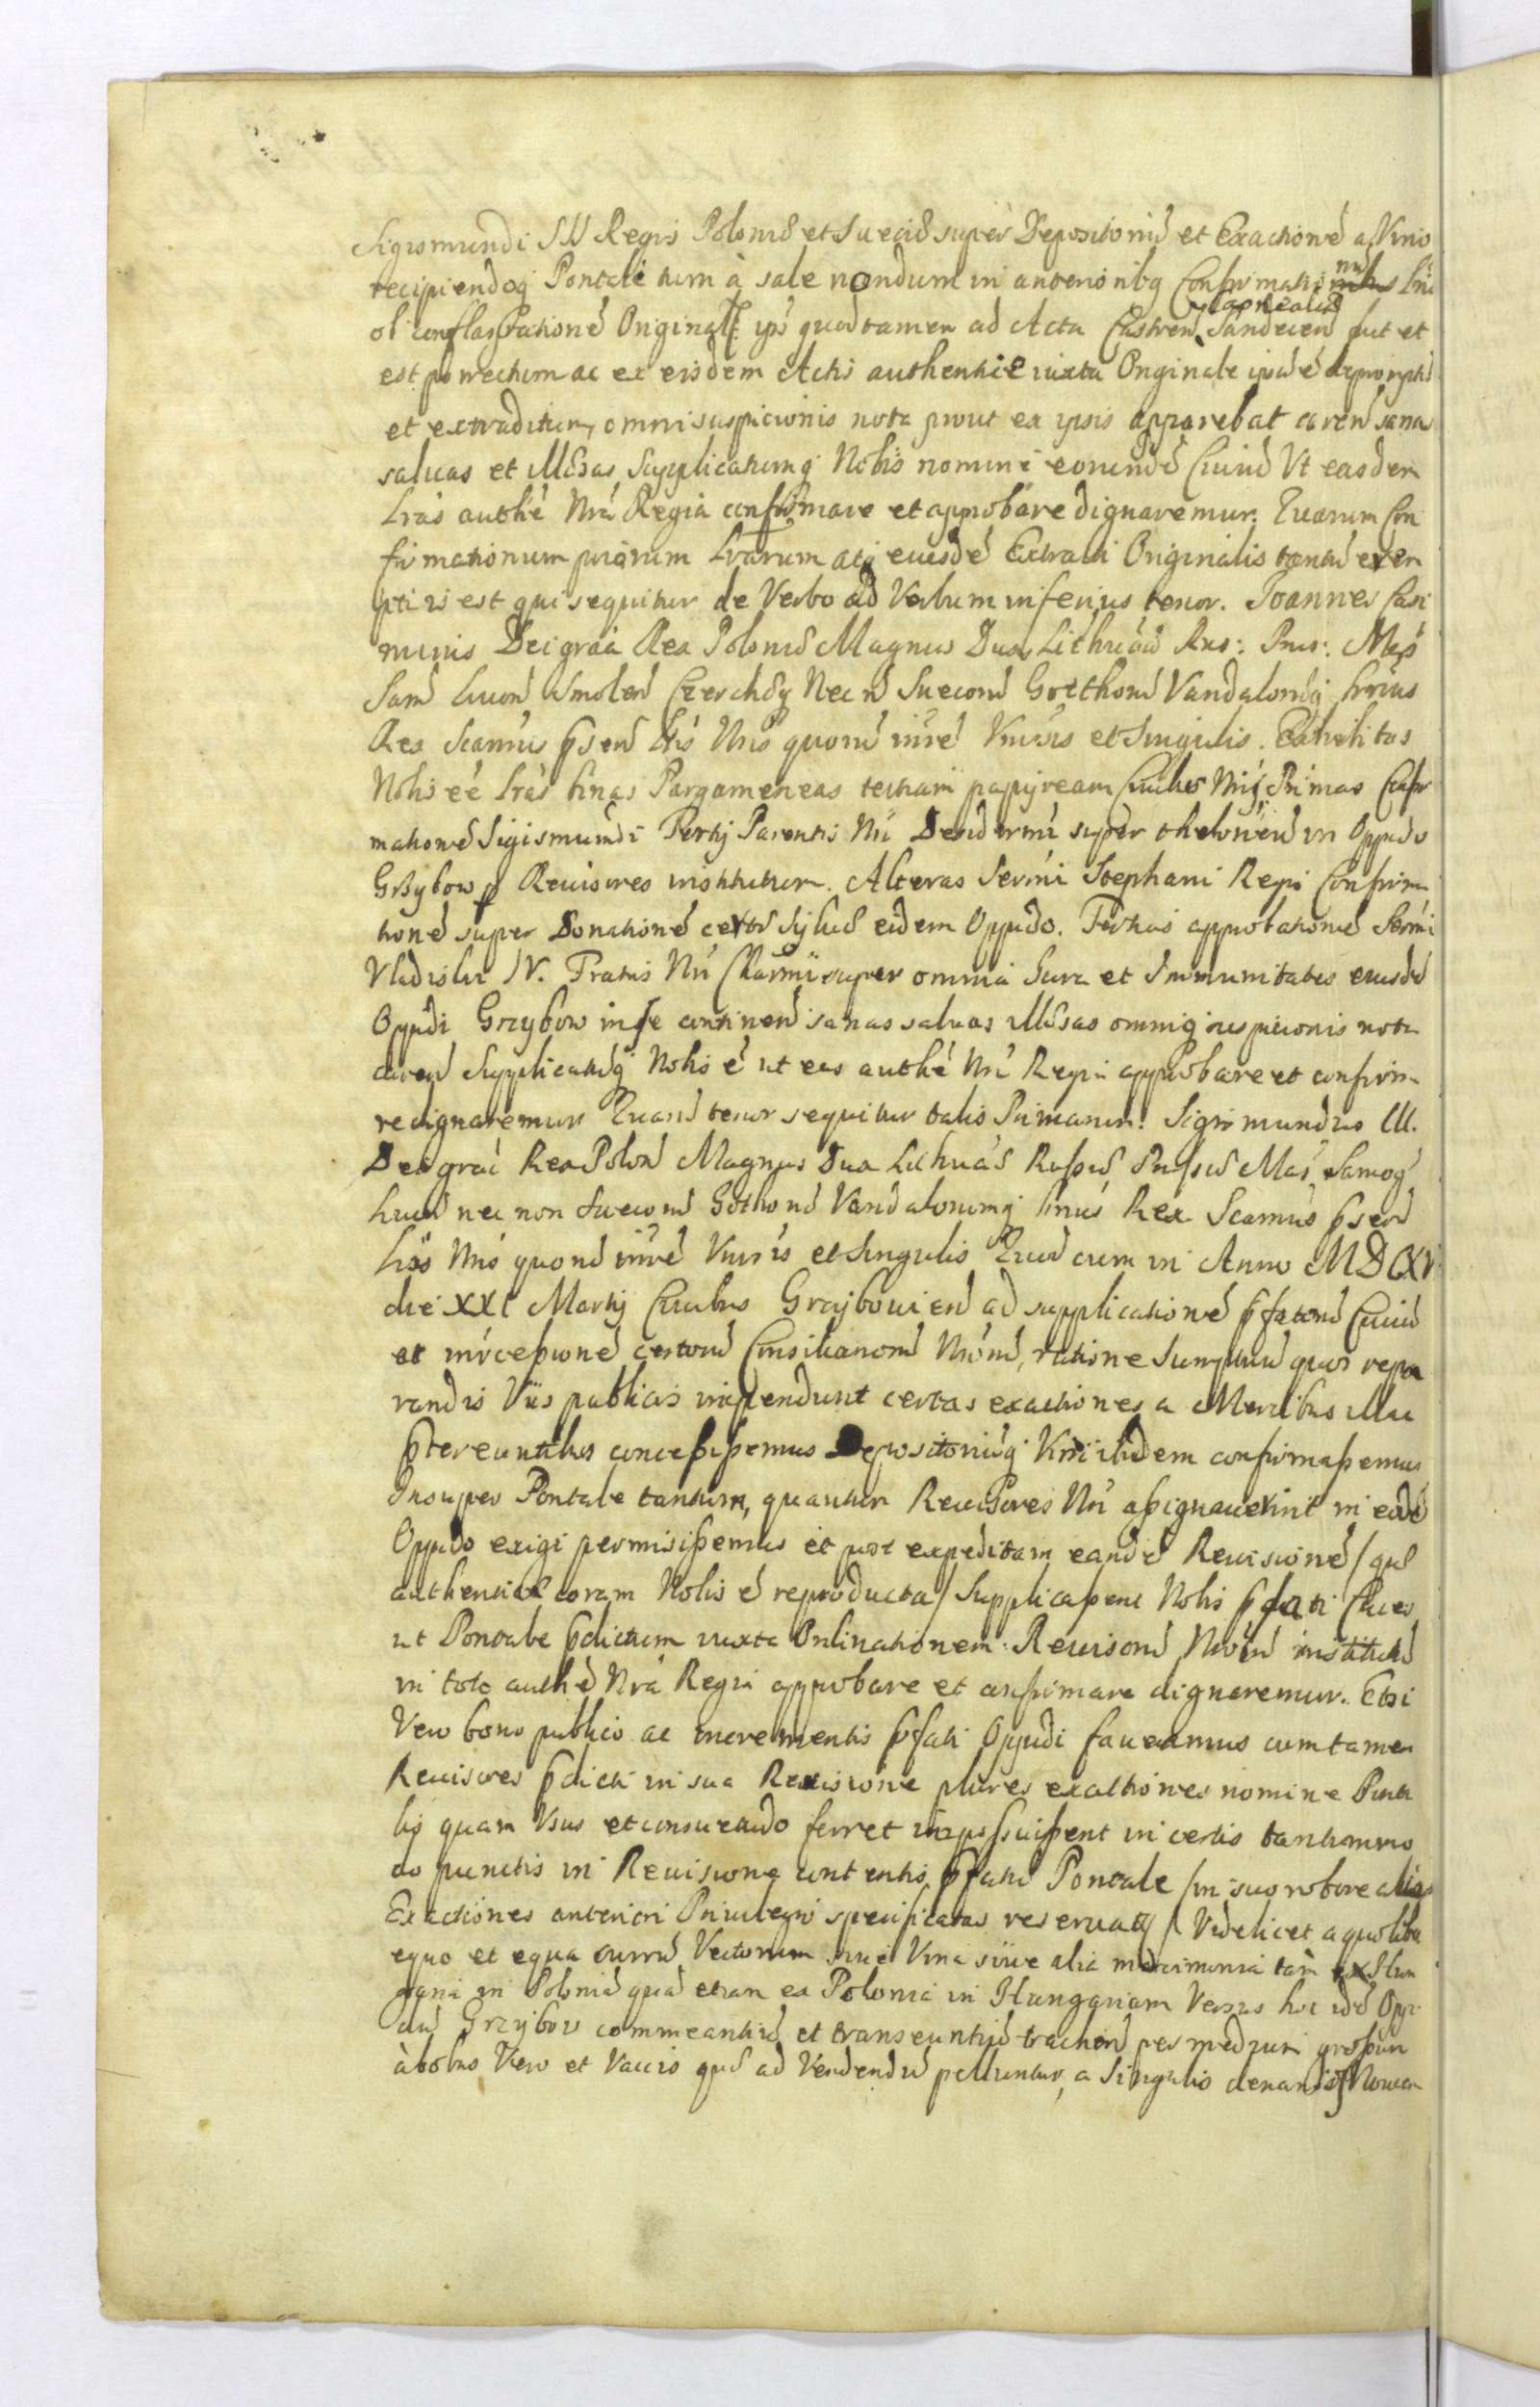 Sigismundi III Regis Poloniæ et Sueciæ super Depositoriũ et Exactionẽ a Vino
recipiendoq Pontale tum à sale nondum in anteriorib9 Confirmati
ob conflagrationẽ Original ips quod tamen ad Acta Castren Sandecen fuit et
est porrectum ac ex eisdem Actis authentice iuxta Originale
et extraditum, omni suspicionis nota prout ex ipsis apparebat caren sanas
saluas et illæsas Supplicatumq Nobis nomine eorundẽ Ciuiũ Vt easdem
Lras authẽ Nrá Regia confirmare et approbare dignaremur. Quarum Con
firmationum priorum Lrarum atq eiusdẽ Extracti Originalis exem
pti is est qui sequitur de Verbo ad Verbum inferius tenor. Joannes Casi
mirus Dei gráa Rex Poloniæ Magnus Dux Lithuaũ Rus: Prus: Mas
Sam Liuon Smolen Czerchõq Necñ Suecorũ Gotthorũ Vandalorũq hrius
Rex Scamus psen Lris Nris quorũ inrẽ Vniusis et Singulis. Exhibitas
Nobis eẽ Lras binas Pargameneas tertiam papyream Primas Confir
mationẽ Sigismundi Tertij Parentis Nri Desidermi super theloneũ in Oppido
Grzybow p Reuisores institutum. Alteras Sermi Stephani Regis Confirma
tionẽ super Donationẽ certæ Syluæ eidem Oppido. Tertias approbationẽ Sermi
Vladislai IV. Fratris Nri Charmi super omnia Iura et Immunitates eiusdẽ
Oppidi Grzybow in se continen sanas saluas illæsas omniq suspicionis nota
caren Supplicatũq Nobis ẽ ut eas authẽ Nrá Regia approbare et confirma
re dignaremur Quarũ tenor sequitur talis Primarum. Sigismundus III.
Dei gráa Rex Polon Magnus Dux Lithuaæ Russiæ, Prussiæ Mas, Samog
Liuoñ nec non Suecorũ Gothorũ Vandalorumq hrius Rex Scamus psen
Lris Nris quorũ inrẽ Vniuis et Singulis Quod cum in Anno MDCXV
die XXI Martij Ciuibus Grzybouien ad supplicationẽ pfatorũ Ciuiũ
et intcessionẽ certorũ Consiliariorũ Nrorũ, ratione Sumptuũ quos repa
randis Viis publicis impendunt certas exactiones a Mercibus illac
ptereuntibus concessissemus Depositoriũq Vini ibidem confirmassemus
Insuper Pontale tantum, quantum Reuisores Nri assignauerint in eodẽ
Oppido exigi permisissemus et post expeditam eandẽ Reuisionẽ / quæ
authenticæ coram Nobis ẽ reproducta / Supplicassent Nobis pfati Ciues
ut Pontale pdictum iuxta Ordinationem Reuisorũ Nrorũ institutũ
in toto authẽ Nrá Regia approbare et confirmare dignaremur. Etsi
Vero bono publico ac incrementis pfati Oppidi faueamus cum tamen
Reuisores pdicti in sua Reuisione plures exactiones nomine Ponta
lis quam Vsus et consuetudo ferret imposuissent in certis tantummo
do punctis in Reuisione contentis pfatũ Pontale / in suo robore alias
Exactiones anteriori Priuilegio specificatas reseruatq / Videlicet a quolibet
equo et equa curruũ Vectorum siue Vina siue alia mercimonia tam ex Hun
garia in Poloniã quã etiam ex Polonia in Hungariam Versus hoc idẽ Oppi
dũ Grzybow commeantiũ et transeuntiũ trahen per medium grossum
à bobus Vero et Vaccis quæ ad Vendendũ pelluntur, a singulis denarios Nouem